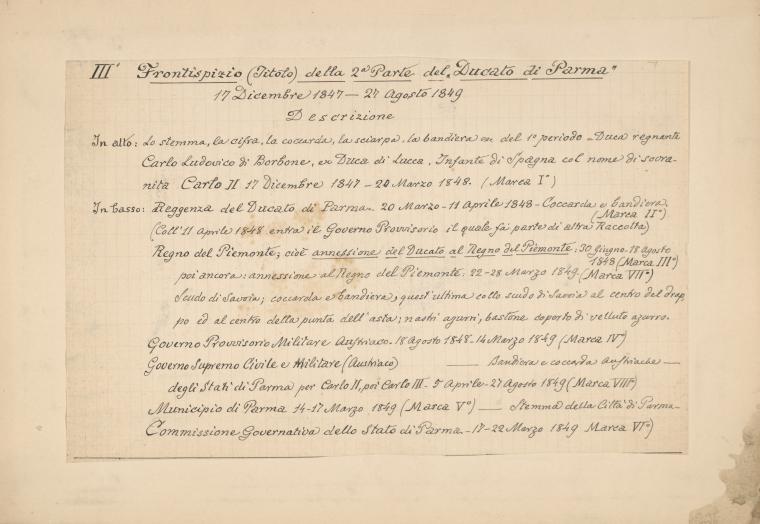 III° Frontispizio (Titolo) della 2ª Parte del „Ducato di Parma"
17 Dicembre 1847 — 27 Agosto 1849
Descrizione
In alto: Lo stemma, la cifra, la coccarda, la sciarpa, la bandiera del 1° periodo - Duca regnante
Carlo Ludovico di Borbone, ex Duca di Lucca, Infante di Spagna col nome di sovra-
nità Carlo II 17 Dicembre 1847 - 20 Marzo 1848. (Marca I°)
In basso: Reggenza del Ducato di Parma - 20 Marzo - 11 Aprile 1848 - Coccarda e bandiera.
(Marca II°)
(Coll'11 Aprile 1848 entra il Governo Provvisorio il quale fà parte di altra Raccolta)
Regno del Piemonte; cioè annessione del Ducato al Regno del Piemonte: 30 Giugno - 18 agosto
1848 (Marca III°)
poi ancora: annessione al Regno del Piemonte. 22-28 Marzo 1849. (Marca VII°)
Scudo di Savoia; coccarda e bandiera, quest'ultima collo scudo di Savoia al centro del drap-
po ed al centro della punta dell'asta; nastri azurri, bastone coporto di velluto azurro.
Governo Provvisorio Militare Austriaco. 18 Agosto 1848 - 14 Marzo 1849 (Marca IV°)
Governo Supremo Civile e Militare (Austriaco) — Bandiera e coccarda Austriache —
degli Stati di Parma per Carlo II, poi Carlo III - 5 Aprile - 27 Agosto 1849 (Marca VIII°)
Municipio di Parma 14-17 Marzo 1849 (Marca V°) — Stemma della Città di Parma -
Commissione Governativa dello Stato di Parma - 17-22 Marzo 1849 Marca VI°)